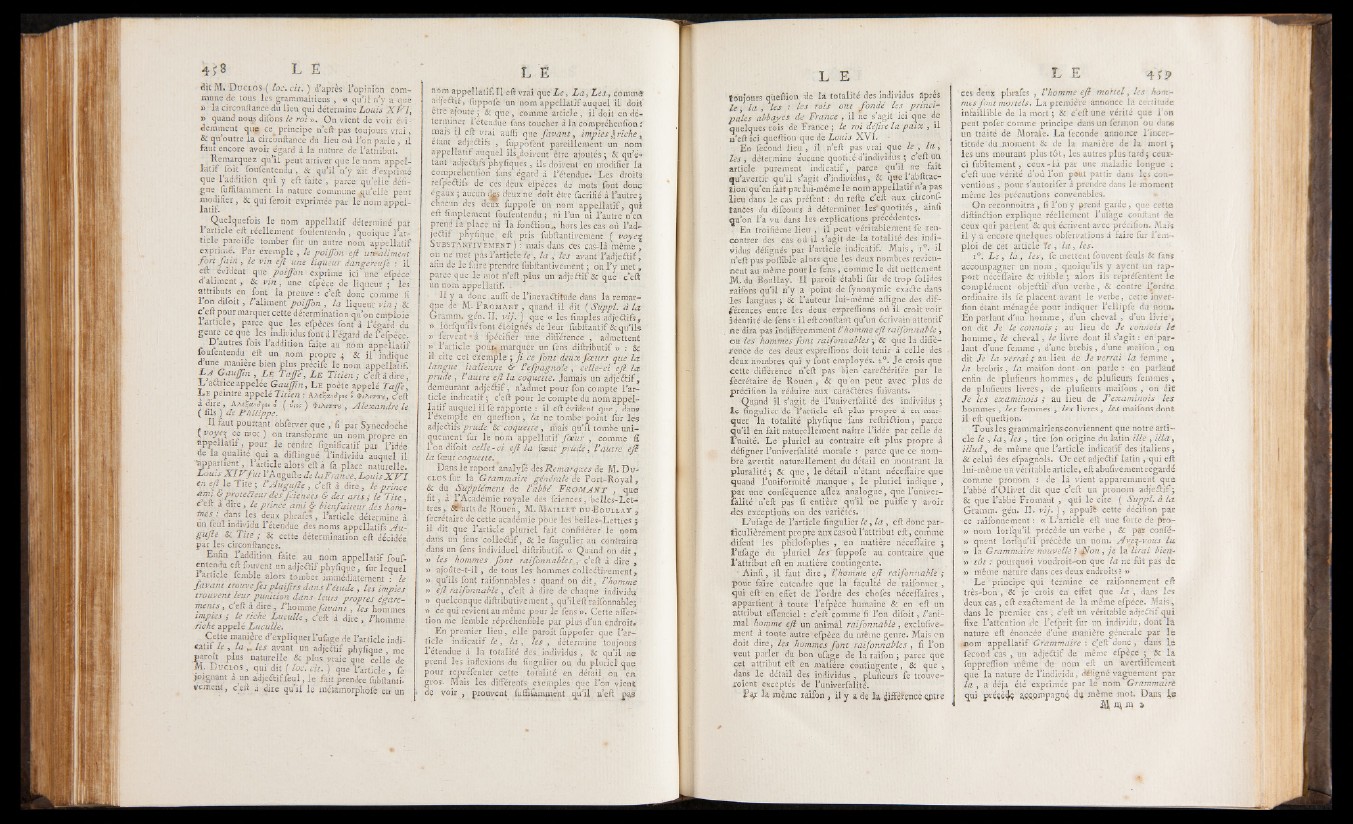 458 L E
dit M. DUCLOS (loc. cit.) d'après l'opinion com-
mune de tous les grammairiens, « qu'il n'y a que
» la circonstance du lieu qui détermine Louis XVI,
» quand nous disons le roi ». On vient de voir évi-
demment que ce principe n'est pas toujours vrai,
& qu'outre la circonstance du lieu où l'on parle, il
faut encore avoir égard à la nature de l'attribut.
Remarquez qu'il peut arriver que le nom appel-
latif soit sousentendu, & qu'il n'y ait d'exprimé
que l'addition qui y est faite, parce qu'elle dési-
gne suffisamment la nature commune qu'elle peut
modifier, & qui seroit exprimée par le nom appel-
latif.
Quelquefois le nom appellatif déterminé par
l'article est réellement sousentendu, quoique l'ar-
ticle paroisse tomber sur un autre nom appellatif
exprimé. Par exemple, le poisson est un aliment
fort sain, le vin est une liqueur dangereuse : il
est évident que poisson exprime ici une espèce
d'aliment, & vin, une espèce de liqueur ; les
attributs en font la preuve : c'est donc comme si
l'on disoit, l'aliment poisson, la liqueur vin ; &
c'est pour marquer cette détermination qu'on emploie
l'article, parce que les espèces sont à l'égard du
genre ce que les individus sont à l'égard de l'espèce.
D'autres fois l'addition faite au nom appellatif
sousentendu est un nom propre ; & il indique
d'une manière bien plus précise le nom appellatif.
LA Gaussin, LE Tasse, LE Titien ; c'est à dire,
L'actrice appelée Gaussin, LE poète appelé Tasse,
LE peintre appelé Titien : Αλέξανδρος ὁ Φιλίππου, c'est
à dire, Αλέξανδρος ὁ (υἱος) Φιλίππου, Alexandre le
(fils) de Philippe.
Il faut pourtant observer que, si par Synecdoche
(voyez ce mot) on transforme un nom propre en
appellatif, pour le rendre significatif par l'idée
de la qualité qui a distingué l'individu auquel il
appartient, l'article alors est à sa place naturelle.
Louis XIV fut l'Auguste de la France. Louis XVI
en est le Tite ; l'Auguste, c'est à dire, le prince
ami & protecteur des sciences & des arts ; le Tite,
c'est à dire, le prince ami & bienfaiteur des hom-
mes : dans les deux phrases, l'article détermine à
un seul individu l'étendue des noms appellatifs Au-
guste & Tite ; & cette détermination est décidée
par les circonstances.
Enfin l'addition faite au nom appellatif sous-
entendu est souvent un adjectif physique, sur lequel
l'article semble alors tomber immédiatement : le
savant trouve ses plaisirs dans l'étude, les impies
trouvent leur punition dans leurs propres égare-
ments, c'est à dire, l'homme savant, les hommes
impies ; le riche Luculle, c'est à dire, l'homme
riche appelé Luculle.
Cette manière d'expliquer l'usage de l'article indi-
catif le, la, les avant un adjectif physique, me
paroît plus naturelle & plus vraie que celle de
M. DUCLOS, qui dit (loc. cit.) que l'article, se
joignant à un adjectif seul, le fait prendre substanti-
vement, c'est à dire qu'il le métamorphose en un
L E
nom appellatif. Il est vrai que Le, La, Les, comme
adjectif, suppose un nom appellatif auquel il doit
être ajouté ; & que, comme article, il doit en dé-
terminer l'étendue sans toucher à la compréhension :
mais il est vrai aussi que savant, impies & riche,
étant adjectifs, supposent pareillement un nom
appellatif auquel ils doivent être ajoutés ; & qu'é-
tant adjectifs physiques, ils doivent en modifier la
compréhension sans égard à l'étendue. Les droits
respectifs de ces deux espèces de mots sont donc
égaux ; aucun des deux ne doit être sacrifié à l'autre ;
chacun des deux suppose un nom appellatif, qui
est simplement sousentendu ; ni l'un ni l'autre n'en
prend la place ni la fonction, hors les cas où l'ad-
jectif physique est pris substantivement (voyez
SUBSTANTIVEMENT) : mais dans ces cas-là même,
on ne met pas l'article le, la, les avant l'adjectif,
afin de le faire prendre substantivement ; on l'y met,
parce que le mot n'est plus un adjectif & que c'est
un nom appellatif.
Il y a donc aussi de l'inexactitude dans la remar-
que de M. FROMANT, quand il dit (Suppl. à la
Gramm. gén. II, vij.) que « les simples adjectifs,
» lorsqu'ils sont éloignés de leur substantif & qu'ils
» servent à spécifier une différence, admettent
» l'article pour marquer un sens distributif » : &
il cite cet exemple ; si ces sont deux sœurs que la
langue italienne & l'espagnole, celle-ci est la
prude, l'autre est la coquette. Jamais un adjectif,
demeurant adjectif, n'admet pour son compte l'ar-
ticle indicatif ; c'est pour le compte du nom appel-
latif auquel il se rapporte : il est évident que, dans
l'exemple en question, la ne tombe point sur les
adjectifs prude & coquette, mais qu'il tombe uni-
quement sur le nom appellatif sœur, comme si
l'on disoit celle-ci est la sœur prude, l'autre est
la sœur coquette.
Dans le raport analysé des Remarques de M. Du-
CLOS sur la Grammaire générale de Port-Royal,
& du Supplément de l'abbé FROMANT, que
fit, à l'Académie royale des sciences, belles-Let-
tres, & arts de Rouen, M. MAILLET DU BOULLAY,
secrétaire de cette académie pour les belles-Lettres ;
il dit que l'article pluriel fait considérer le nom
dans un sens collectif, & le singulier au contraire
dans un sens individuel distributif. « Quand on dit,
» les hommes sont raisonnables, c'est à dire,
» ajoûte-t-il, de tous les hommes collectivement,
» qu'ils sont raisonnables : quand on dit, l'homme
» est raisonnable, c'est à dire de chaque individu
» quelconque distributivement, qu'il est raisonnable ;
» ce qui revient au même pour le sens ». Cette asser-
tion me semble répréhensible par plus d'un endroit.
En premier lieu, elle paroît supposer que l'ar-
ticle indicatif le, la, les, détermine toujours
l'étendue à la totalité des individus, & qu'il ne
prend les inflexions du singulier ou du pluriel que
pour représenter cette totalité en détail ou en
gros. Mais les différents exemples que l'on vient
de voir, prouvent suffisamment qu'il n'est pas
L E
toujours question de la totalité des individus après
le, la, les : les rois ont fondé les princi-
pales abbayes de France, il ne s'agit ici que de
quelques rois de France ; le roi desire la paix, il
n'est ici question que de Louis XVI.
En second lieu, il n'est pas vrai que le, la,
les, détermine aucune quotité d'individus ; c'est un
article purement indicatif, parce qu'il ne fait
qu'avertir qu'il s'agit d'individus, & que l'abstrac-
tion qu'en fait par lui-même le nom appellatif n'a pas
lieu dans le cas présent : du reste c'est aux circons-
tances du discours à déterminer les quotités, ainsi
qu'on l'a vu dans les explications précédentes.
En troisième lieu, il peut véritablement se ren-
contrer des cas où il s'agit de la totalité des indi-
vidus désignés par l'article indicatif. Mais, 1°. il
n'est pas possible alors que les deux nombres revien-
nent au même pour le sens, comme le dit nettement
M. du Boullay. Il paroit établi sur de trop solides
raisons qu'il n'y a point de synonymie exacte dans
les langues ; & l'auteur lui-même assigne des dif-
férences entre les deux expressions où il croit voir
identité de sens : il est constant qu'un écrivain attentif
ne dira pas indifféremment l'homme est raisonnable,
ou les hommes sont raisonnables ; & que la diffé-
rence de ces deux expressions doit tenir à celle des
deux nombres qui y sont employés. 2°. Je crois que
cette différence n'est pas bien caractérisée par le
secrétaire de Rouen, & qu'on peut avec plus de
précision la réduire aux caractères suivants.
Quand il s'agit de l'universalité des individus ;
le singulier de l'article est plus propre à en mar-
quer la totalité physique sans restriction, parce
qu'il en fait naturellement naître l'idée par celle de
l'unité. Le pluriel au contraire est plus propre à
désigner l'universalité morale : parce que ce nom-
bre avertit naturellement du détail en montrant la
pluralité ; & que, le détail n'étant nécessaire que
quand l'uniformité manque, le pluriel indique,
par une conséquence assez analogue, que l'univer-
salité n'est pas si entière qu'il ne puisse y avoir
des exceptions ou des variétés.
L'usage de l'article singulier le, la, est donc par-
ticulièrement propre aux cas où l'attribut est, comme
disent les philosophes, en matière nécessaire ;
l'usage du pluriel les suppose au contraire que
l'attribut est en matière contingente.
Ainsi, il faut dire, l'homme est raisonnable ;
pour faire entendre que la faculté de raisonner,
qui est en effet de l'ordre des choses nécessaires,
appartient à toute l'espèce humaine & en est un
attribut essenciel : c'est comme si l'on disoit, l'ani-
mal homme est un animal raisonnable, exclusive-
ment à toute autre espèce du même genre. Mais on
doit dire, les hommes sont raisonnables, si l'on
veut parler du bon usage de la raison ; parce que
cet attribut est en matière contingente, & que,
dans le détail des individus, plusieurs se trouve-
roient exceptés de l'universalité.
Par la même raison, il y a de la différence entre
L E 459
ces deux phrases, l'homme est mortel, les hom-
mes sont mortels. La première annonce la certitude
infaillible de la mort ; & c'est une vérité que l'on
peut poser comme principe dans un sermon ou dans
un traité de Morale. La seconde annonce l'incer-
titude du moment & de la manière de la mort ;
les uns mourant plus tôt, les autres plus tard ; ceux-
ci subitement, ceux-là par une maladie longue :
c'est une vérité d'où l'on peut partir dans les con-
ventions, pour s'autoriser à prendre dans le moment
même les précautions convenables.
On reconnoîtra, si l'on y prend garde, que cette
distinction explique réellement l'usage constant de
ceux qui parlent & qui écrivent avec précision. Mais
il y a encore quelques observations à faire sur l'em-
ploi de cet article le, la, les.
1°. Le, la, les, se mettent souvent seuls & sans
accompagner un nom, quoiqu'ils y ayent un rap-
port nécessaire & visible ; alors ils représentent le
complément objectif d'un verbe, & contre l'ordre
ordinaire ils se placent avant le verbe, cette inver-
sion étant ménagée pour indiquer l'ellipse du nom.
En parlant d'un homme, d'un cheval, d'un livre,
on dit Je le connois ; au lieu de Je connois le
homme, le cheval, le livre dont il s'agit : en par-
lant d'une femme, d'une brebis, d'une maison, on
dit Je la verrai ; au lieu de Je verrai la femme,
la brebis, la maison dont on parle : en parlant
enfin de plusieurs hommes, de plusieurs femmes,
de plusieurs livres, de plusieurs maisons, on dit
Je les examinois ; au lieu de J'examinois les
hommes, les femmes, les livres, les maisons dont
il est question.
Tous les grammairiens conviennent que notre arti-
cle le, la, les, tire son origine du latin ille, illa,
illud, de même que l'article indicatif des italiens,
& celui des espagnols. Or cet adjectif latin, qui est
lui-même un véritable article, est abusivement regardé
comme pronom : de là vient apparemment que
l'abbé d'Olivet dit que c'est un pronom adjectif ;
& que l'abbé Fromant, qui le cite (Suppl. à la
Gramm. gén. II. vij.), appuie cette décision par
ce raisonnement : « L'article est une sorte de pro-
» nom lorsqu'il précède un verbe, & par consé-
» quent lorsqu'il précède un nom. Avez-vous lu
» la Grammaire nouvelle ? Non, je la lirai bien-
» tôt : pourquoi voudroit-on que la ne fût pas de
» même nature dans ces deux endroits ? »
Le principe qui termine ce raisonnement est
très-bon, & je crois en effet que la, dans les
deux cas, est exactement de la même espèce. Mais,
dans le premier cas, c'est un véritable adjectif qui
fixe l'attention de l'esprit sur un individu, dont la
nature est énoncée d'une manière générale par le
nom appellatif Grammaire : c'est donc, dans le
second cas, un adjectif de même espèce ; & la
suppression même du nom est un avertissement
que la nature de l'individu, désigné vaguement par
la, a déja été exprimée par le nom Grammaire
qui précède accompagné du même mot. Dans les
M m m 2